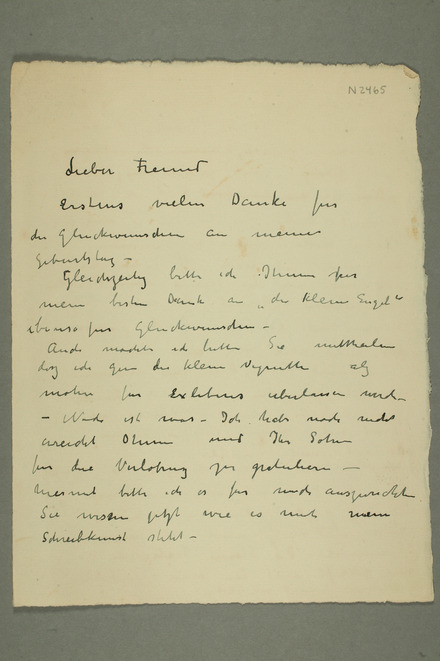 N2465
Lieber Freund
Erstens vielen Danke fur
die Gluckwunschen an meine
Geburtstag –
Gleichzeitig bitte ich Ihnen fur
mein besten Dank an „die kleine Engel"
ebenso fur Gluckwunschen –
bitten Sie mittheilen
dasz ich gern die kleine Vignette als
motiv fur Exlebris uberlassen
– ist was – Ich habe noch nicht
Ihnen und Ihr Sohn
fur die Verlobung zu gratulieren –
hiermit bitte ich es fur mich auszurichten
Sie wissen jetzt wie es mit mein
Schreibkunst steht –